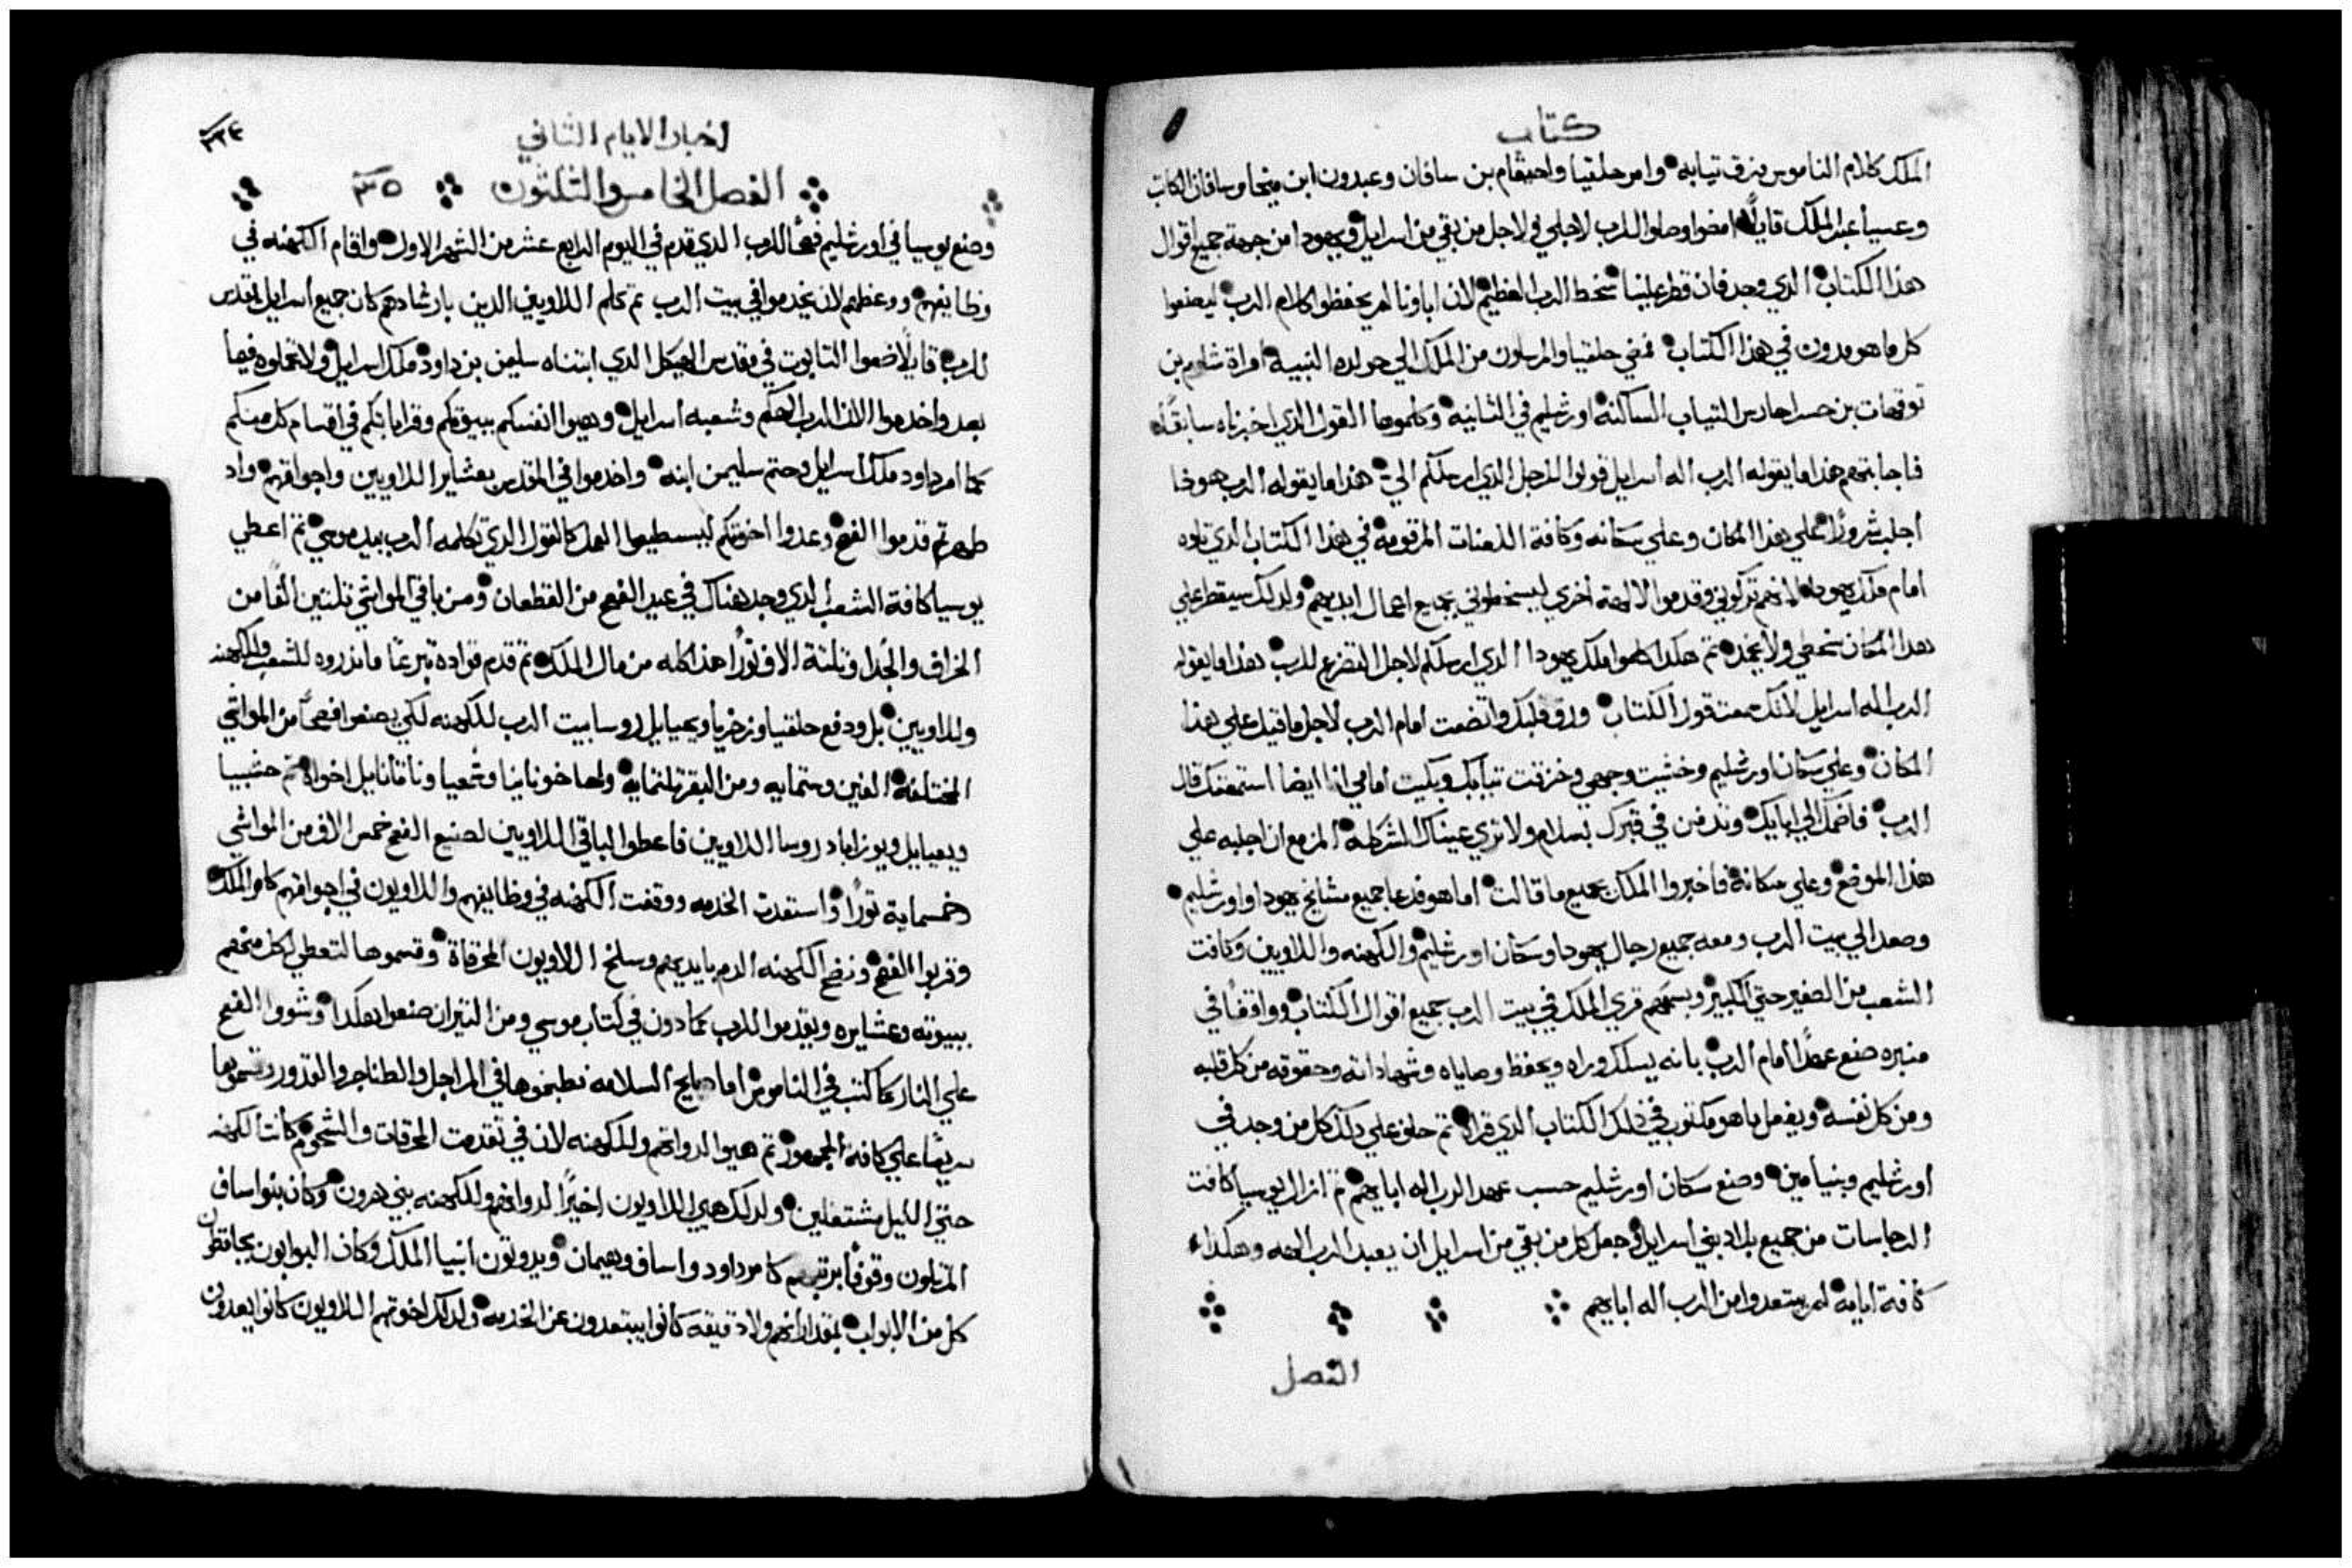 كتاب
الملك كلام الناموس مزق تيابه وامر حلقيا واحيقام بن سافان وعبدون ابن ميخا وسافان الكاتب
وعسيا عبد الملك قايلًا امضوا وصلوا للرب لاجلي ولاجل من بقي من اسرايل ويهودا من جهة جميع اقوال
هذا الكتاب الدي وجد فان قطر علينا سخط الرب العظيم لان اباونا لم يحفظوا كلام الرب ليصنعوا
كل ما هو مدون في هذا الكتاب فمضي حلقيا والمرسلون من الملك الي حولده النبية امراة شلوم بن
توقهات بن حسرا حارس التياب الساكنة اورشليم في الثانية وكلموها القول الدي اخبرناه سابقًا
فاجابتهم هذا ما يقوله الرب اله اسرايل قولوا للرجل الذي ارسلكم الي هذا ما يقوله الرب هوذا
اجلب شرورًا علي هذا المكان وعلي سكانه وكافة اللعنات المرقومة في هذا الكتاب الدي تلوه
امام ملك يهودا لانهم تركوني وقدموا لالهة اخري ليسخطوني بجميع اعمال ايديهم ولدلك سيقطر علي
هدا المكان سخطي ولا يخمد تم هكدا كلموا ملك يهودا الدي ارسلكم لاجل التضرع للرب هذا ما يقوله
الرب اله اسرايل لانك سمعت قول الكتاب ورق قلبك واتضعت امام الرب لاجل ما قيل علي هذا
المكان وعلي سكان اورشليم وخشيت وجهي وخزقت تيابك وبكيت امامي انا ايضا استمعتك قال
الرب فاضمك الي ابايك وتدفن في قبرك بسلام ولا تري عيناك الشر كله المزمع ان اجلبه علي
هذا الموضع وعلي سكانه فاخبروا الملك بجميع ما قالت اما هو فدعا جميع مشايخ يهودا واورشليم
وصعد الي بيت الرب ومعه جميع رجال يهودا وسكان اورشليم والكهنه واللاويين وكافت
الشعب من الصغير حتي الكبير وبسمعهم قري الملك في بيت الرب جميع اقوال الكتاب وواقفًا في
منبره صنع عهدًا امام الرب بانه يسلك وراه ويحفظ وصاياه وشهاداته وحقوقه من كل قلبه
ومن كل نفسه ويفعل ما هو مكتوب في ذلك الكتاب الدي قراه تم حلف علي دلك كل من وجد في
اورشليم وبنيامين وصنع سكان اورشليم حسب عهد الرب اله اباهم تم ازال يوسيا كافت
الرجاسات من جميع بلاد بني اسرايل وجعل كل من بقي من اسرايل ان يعبد الرب الهه وهكذا
كافة ايامه لم يبتعدوا من الرب اله اباهم
الفصل
اخبار الايام التاني
٣٣٤
الفصل الخامس والتلتون ٣٥
وصنع يوسيا في اورشليم فصحًا للرب الدي قدم في اليوم الرابع عشر من الشهر الاول واقام الكهنه في
وظايفهم ووعظهم لان يخدموا في بيت الرب تم كلم اللاويين الدين بارشادهم كان جميع اسرايل يتقدس
للرب قايلًا ضعوا التابوت في مقدس الهيكل الدي ابتناه سليمن بن داود ملك اسرايل ولا تحملوه فيما
بعد واخدموا الان الرب الهكم وشعبه اسرايل وهيوا انفسكم ببيوتكم وقراباتكم في اقسام كل منكم
كما امر داود ملك اسرايل وحتم سليمن ابنه واخدموا في المقدس بعشاير اللاويين واجواقهم واد
طهرتم قدموا الفصح وعدوا اخوتكم ليستطيعوا العمل كالقول الدي تكلمه الرب بيد موسي تم اعطي
يوسيا كافة الشعب الدي وجد هناك في عيد الفصح من القطعان ومن باقي المواشي تلتين الفًا من
الخراف والجدا وتلتة الاف تورًا هذا كله من مال الملك تم قدم قواده تبرعًا ما نذروه للشعب وللكهنه
وللاويين بل ودفع حلقيا وزخريا ويحيايل روسا بيت الرب للكهنه لكي يصنعوا فصحًا من المواشي
المختلفة الفين وستمايه ومن البقر تلتمايه واما خونانيا وشمعيا وناتانايل اخواه تم حشبيا
ويعيايل ويوزاباد روسا اللاويين فاعطوا لباقي اللاويين لصنيع الفصح خمس الاف من المواشي
وخمسماية تورًا واستعدت الخدمه ووقفت الكهنه في وظايفهم واللاويون في اجواقهم كامر الملك
وقربوا الفصح ونضح الكهنه الدم بايديهم وسلخ اللاويون المحرقاة وقسموها لتعطي لكل منهم
ببيوته وعشايره ويقدموا للرب كما دون في كتاب موسي ومن التيران صنعوا هكدا وشووا الفصح
علي النار كما كتب في الناموس اما دبايح السلامه فطبخوها في المراجل والطناجر والقدور وقسموها
سريعًا علي كافة الجمهور تم هيوا لدواتهم وللكهنه لان في تقدمت المحرقات والشحوم كانت الكهنه
حتي الليل مشتغلين ولدلك هيي اللاويون اخيرًا لدواتهم وللكهنه بني هرون وكان بنوا ساف
المرتلون وقوفًا برتبتهم كامر داود واساف وهيمان ويدوتون انبيا الملك وكان البوابون يحافظون
كل من الابواب بمقدار انهم ولا دقيقه كانوا يبتعدون عن الخدمه ولدلك اخوتهم اللاويون كانوا يعدون